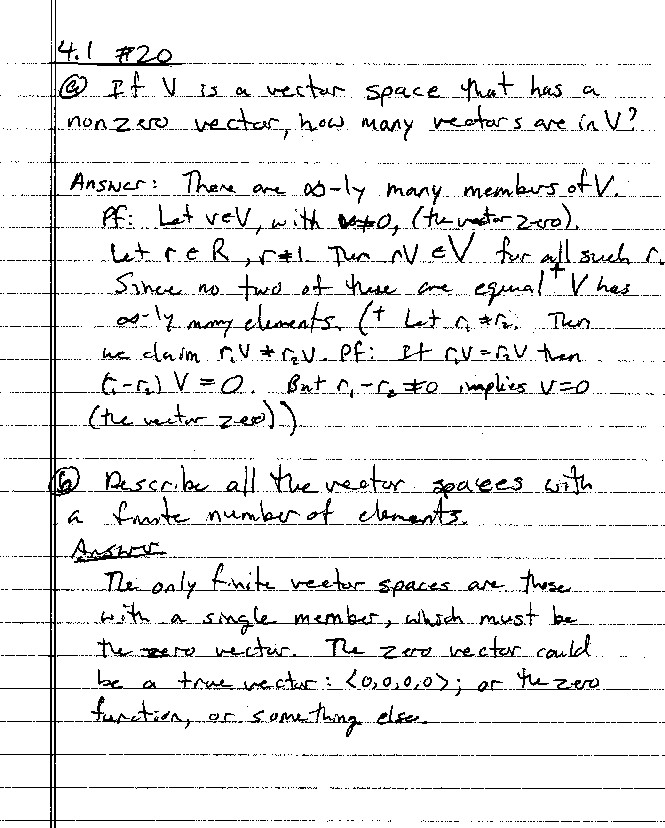 4.1 #20
(a) If V is a vector space that has a
nonzero vector, how many vectors are in V?
Answer: There are ∞-ly many members of V.
Pf: Let v∈V, with v≠0, (the vector zero).
Let r∈R, r≠1. Then rV∈V for all such r.
Since no two of these are equal⁺ V has
∞-ly many elements. (⁺ Let r₁≠r₂. Then
we claim r₁V≠r₂V. Pf: If r₁V=r₂V then
(r₁-r₂)V=0. But r₁-r₂≠0 implies V=0
(the vector zero))
(b) Describe all the vector spaces with
a finite number of elements.
Answer
The only finite vector spaces are those
with a single member, which must be
the zero vector. The zero vector could
be a true vector: <0,0,0,0>; or the zero
function, or something else.